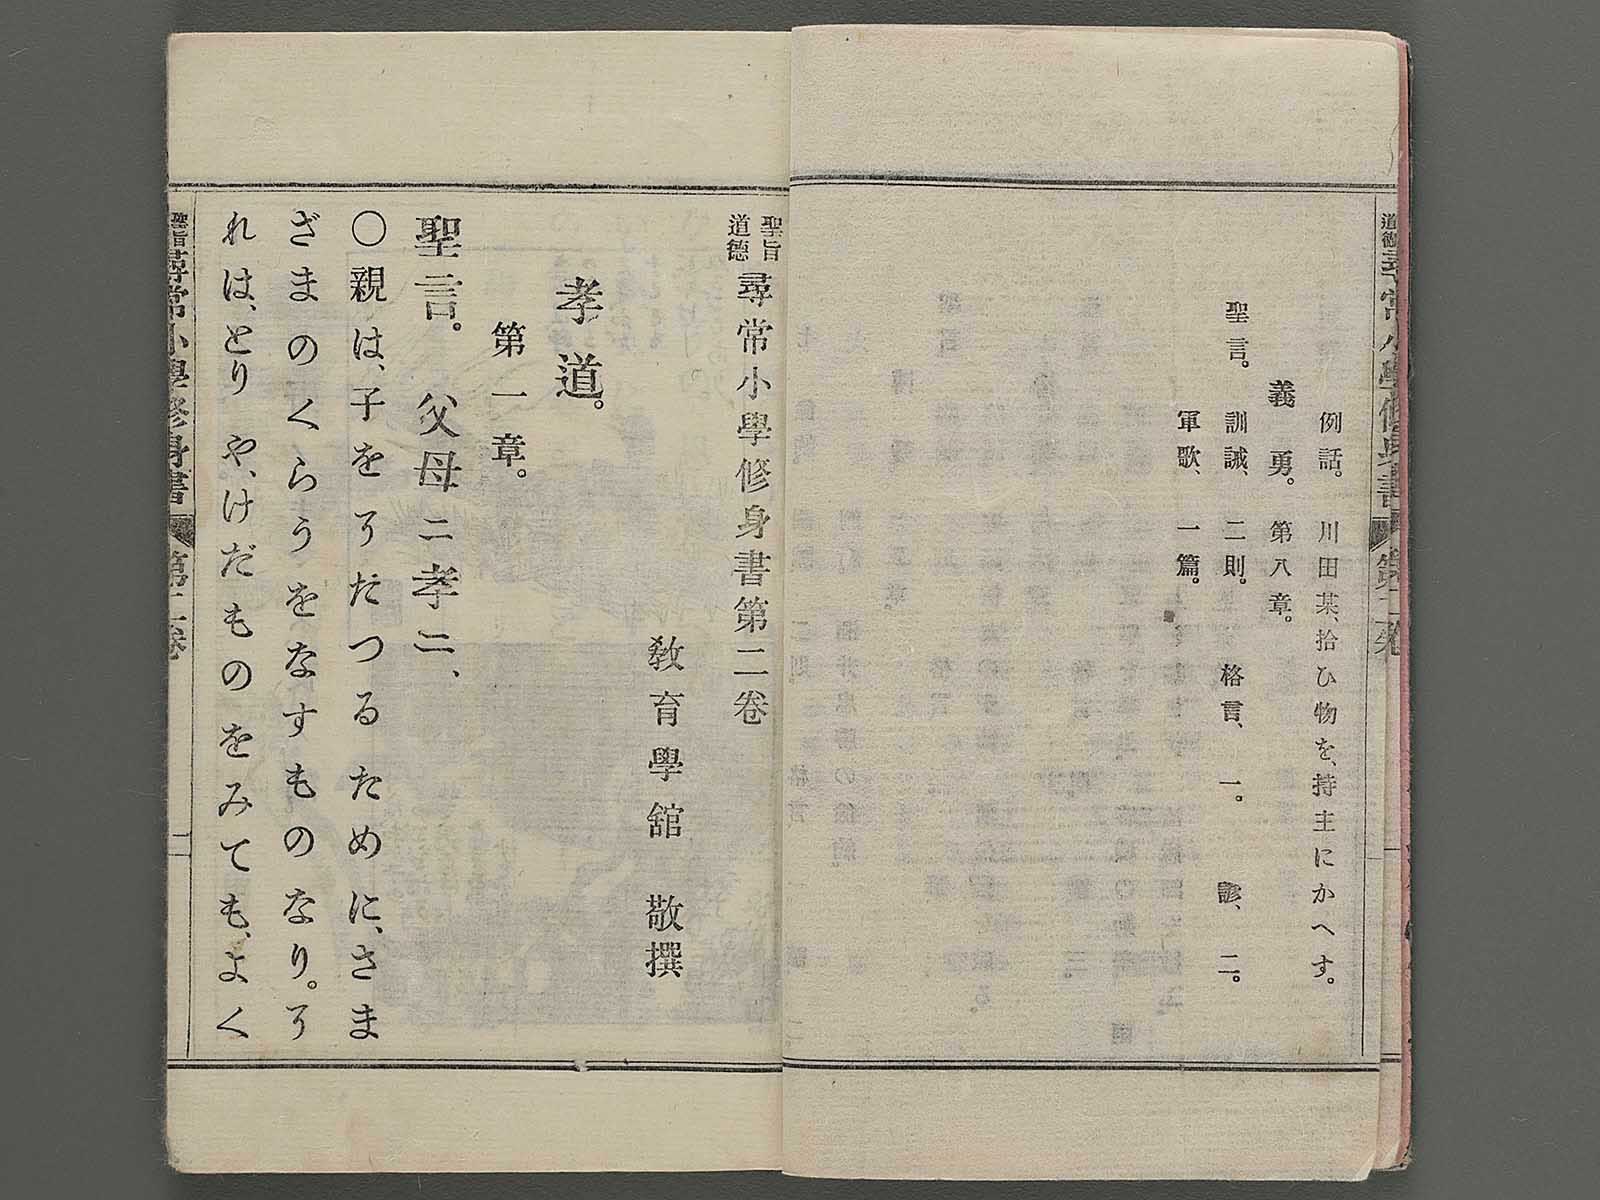 例話。川田某、拾ひ物を、持主にかへす。
義勇。第八章。
聖言。訓誡、二則。格言、一。諺、二。
軍歌、一篇。
聖旨道德 尋常小學修身書第二卷
敎育學舘 敬撰
孝道。
第一章。
聖言。父母ニ孝ニ、
〇親は、子をそだつるために、さま
ざまのくらうをなすものなり。そ
れは、とりや、けだものをみても、よく
聖旨 尋常小學修身書 第二卷 一